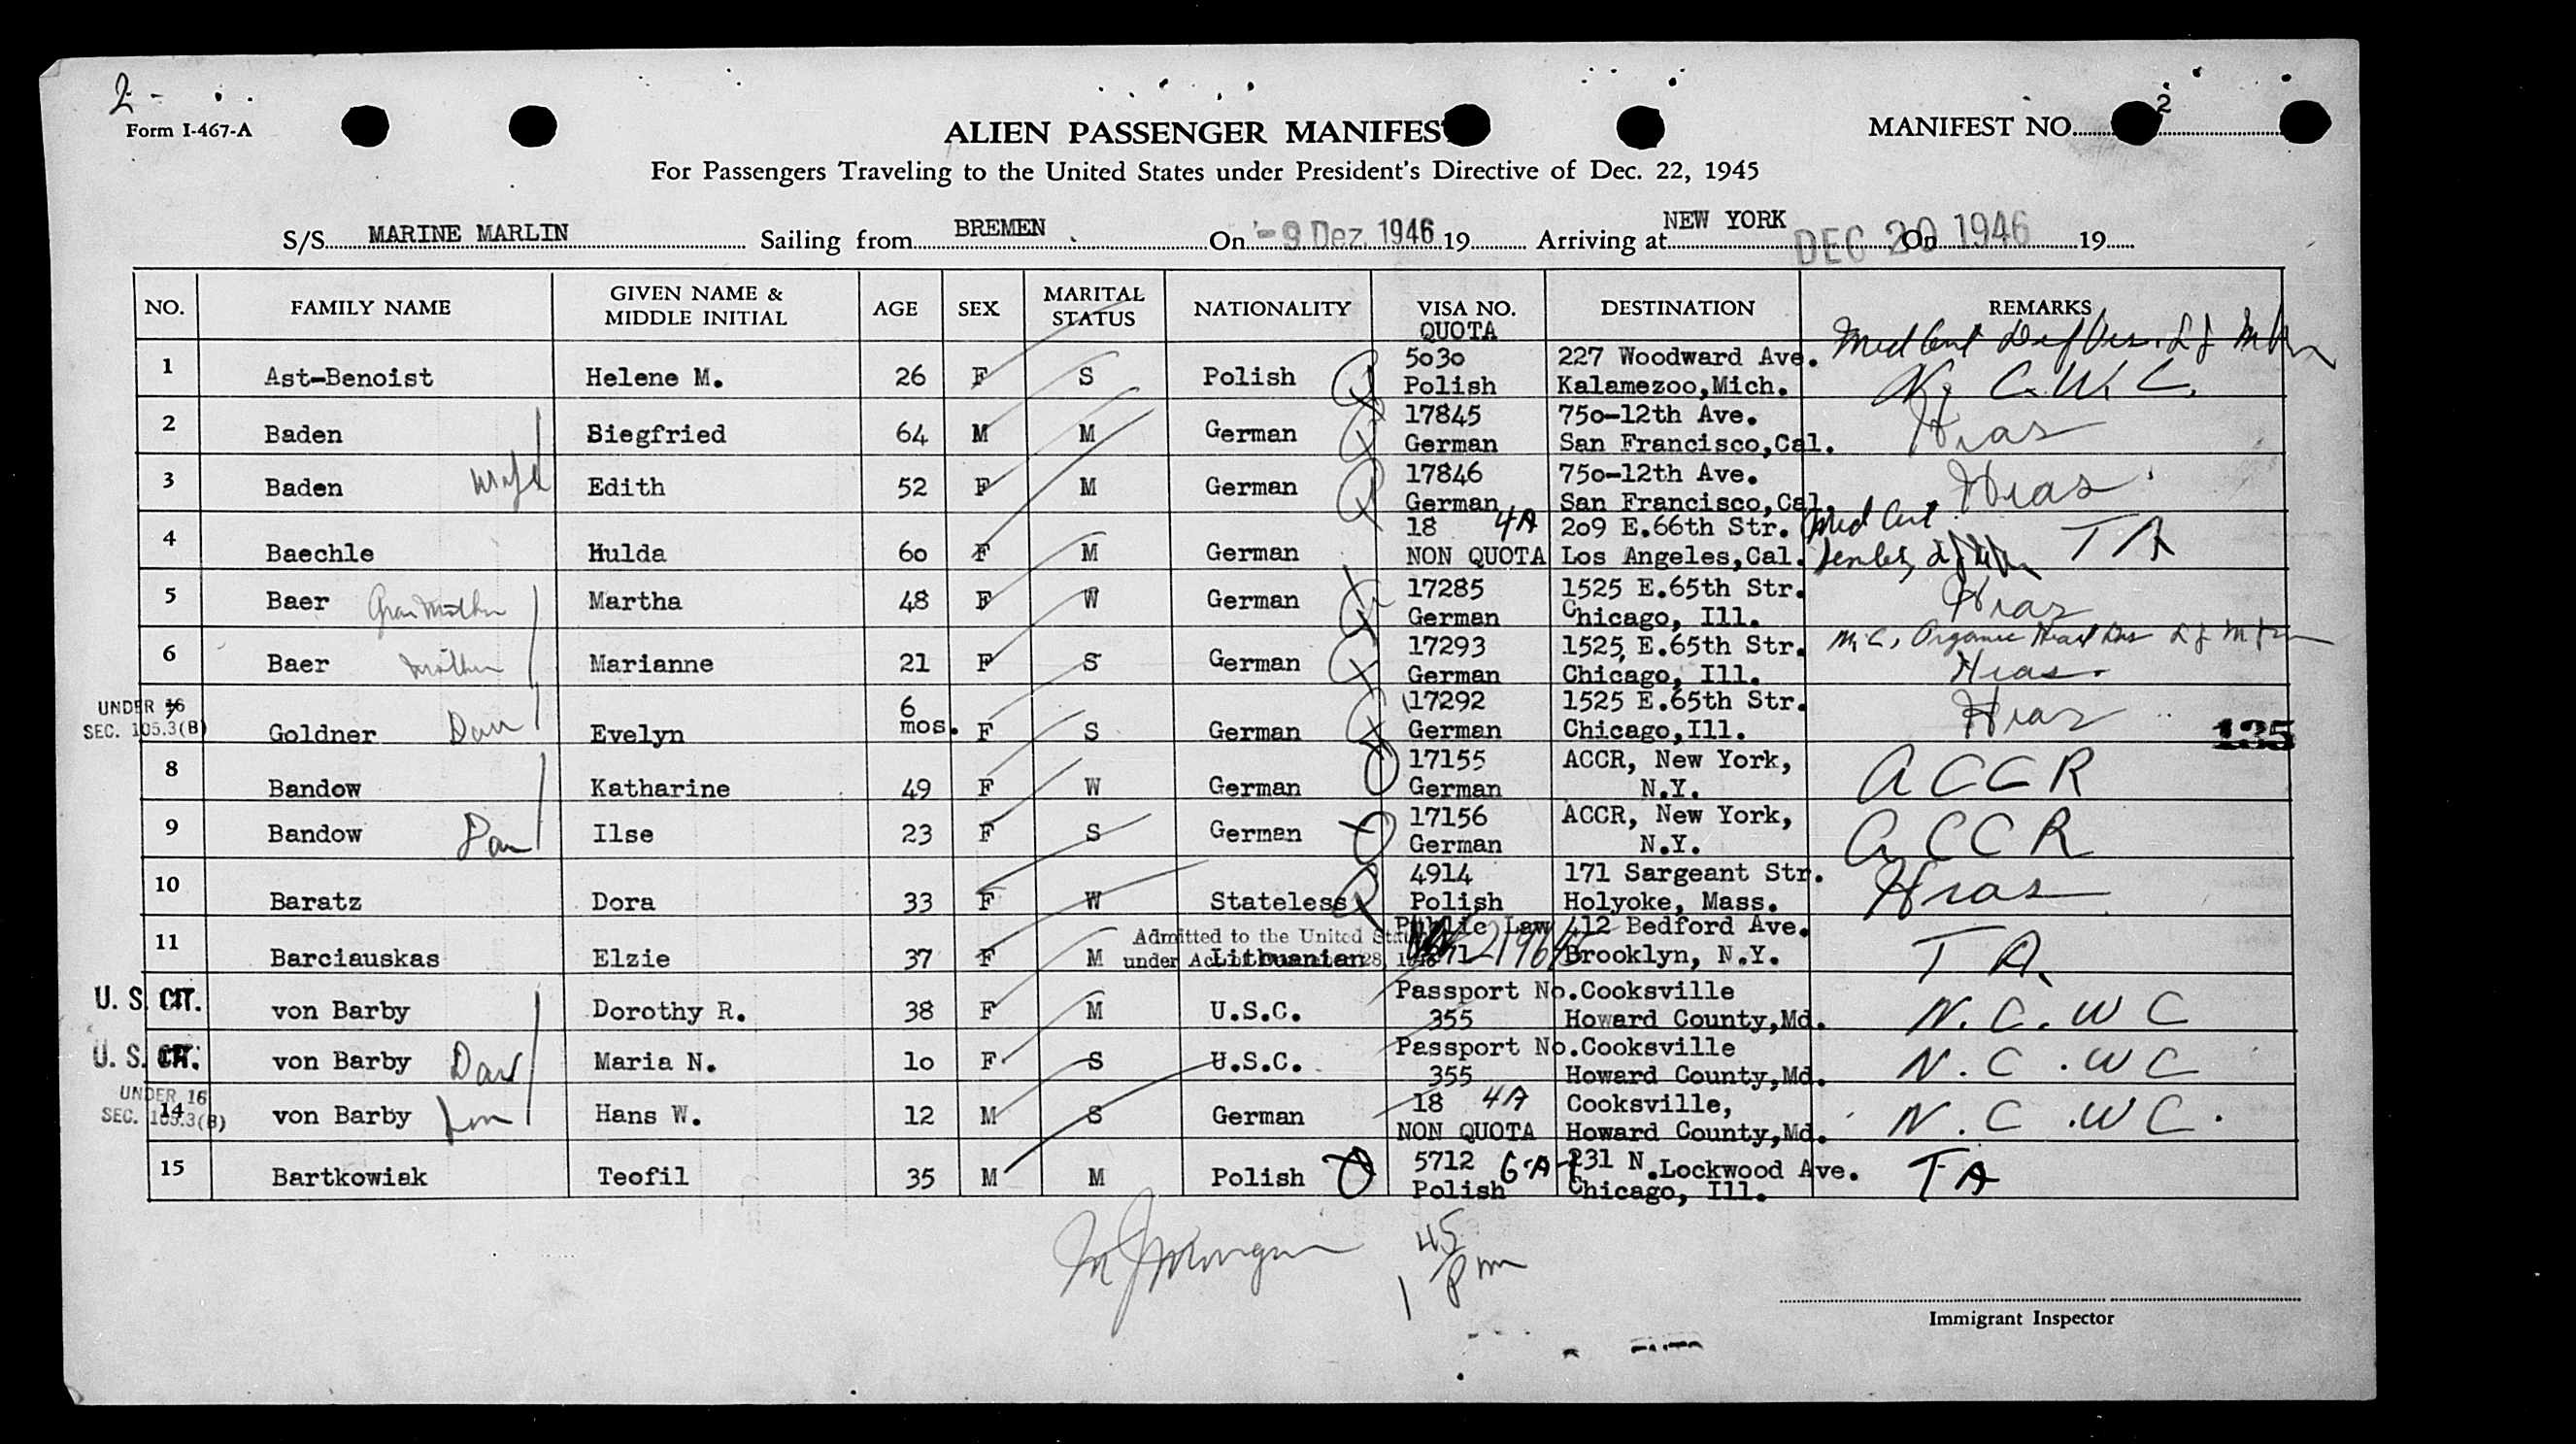 2-
Form I-467-A
ALIEN PASSENGER MANIFEST
MANIFEST NO. 2
For Passengers Traveling to the United States under President's Directive of Dec. 22, 1945
S/S MARINE MARLIN Sailing from BREMEN On - 9 Dez. 1946 19 Arriving at NEW YORK On DEC 20 1946 19
NO. FAMILY NAME GIVEN NAME & MIDDLE INITIAL AGE SEX MARITAL STATUS NATIONALITY VISA NO. QUOTA DESTINATION REMARKS
1 Ast-Benoist Helene M. 26 F S Polish 5030 Polish 227 Woodward Ave. Kalamezoo,Mich. Med Cert N. C. W. C.
2 Baden Siegfried 64 M M German 17845 German 750-12th Ave. San Francisco,Cal. Hias
3 Baden Wife Edith 52 F M German 17846 German 750-12th Ave. San Francisco,Cal. Hias
4 Baechle Hulda 60 F M German 18 4A NON QUOTA 209 E.66th Str. Los Angeles,Cal. Med Cert TA
5 Baer Grandmother Martha 48 F W German 17285 German 1525 E.65th Str. Chicago, Ill. Hias
6 Baer Mother Marianne 21 F S German 17293 German 1525 E.65th Str. Chicago, Ill. M.C, Organic Heart Dis Hias.
UNDER 16 SEC. 105.3(B) 7 Goldner Dau Evelyn 6 mos. F S German 17292 German 1525 E.65th Str. Chicago,Ill. Hias 135
8 Bandow Katharine 49 F W German 17155 German ACCR, New York, N.Y. ACCR
9 Bandow Dau Ilse 23 F S German 17156 German ACCR, New York, N.Y. ACCR
10 Baratz Dora 33 F W Stateless 4914 Polish 171 Sargeant Str. Holyoke, Mass. Hias
11 Barciauskas Elzie 37 F M Lithuanian Admitted to the United States under Act of December 28, 1945 Public Law 271 412 Bedford Ave. Brooklyn, N.Y. T A.
U. S. CIT. von Barby Dorothy R. 38 F M U.S.C. Passport No. 355 Cooksville Howard County,Md. N. C. W C
U. S. CIT. von Barby Dau Maria N. 10 F S U.S.C. Passport No. 355 Cooksville Howard County,Md. N. C. W C
UNDER 16 SEC. 105.3(B) 14 von Barby Son Hans W. 12 M S German 18 4A NON QUOTA Cooksville, Howard County,Md. N. C. W C.
15 Bartkowiak Teofil 35 M M Polish 5712 6-A-1 Polish 231 N.Lockwood Ave. Chicago, Ill. TA
1 45 Pm
Immigrant Inspector